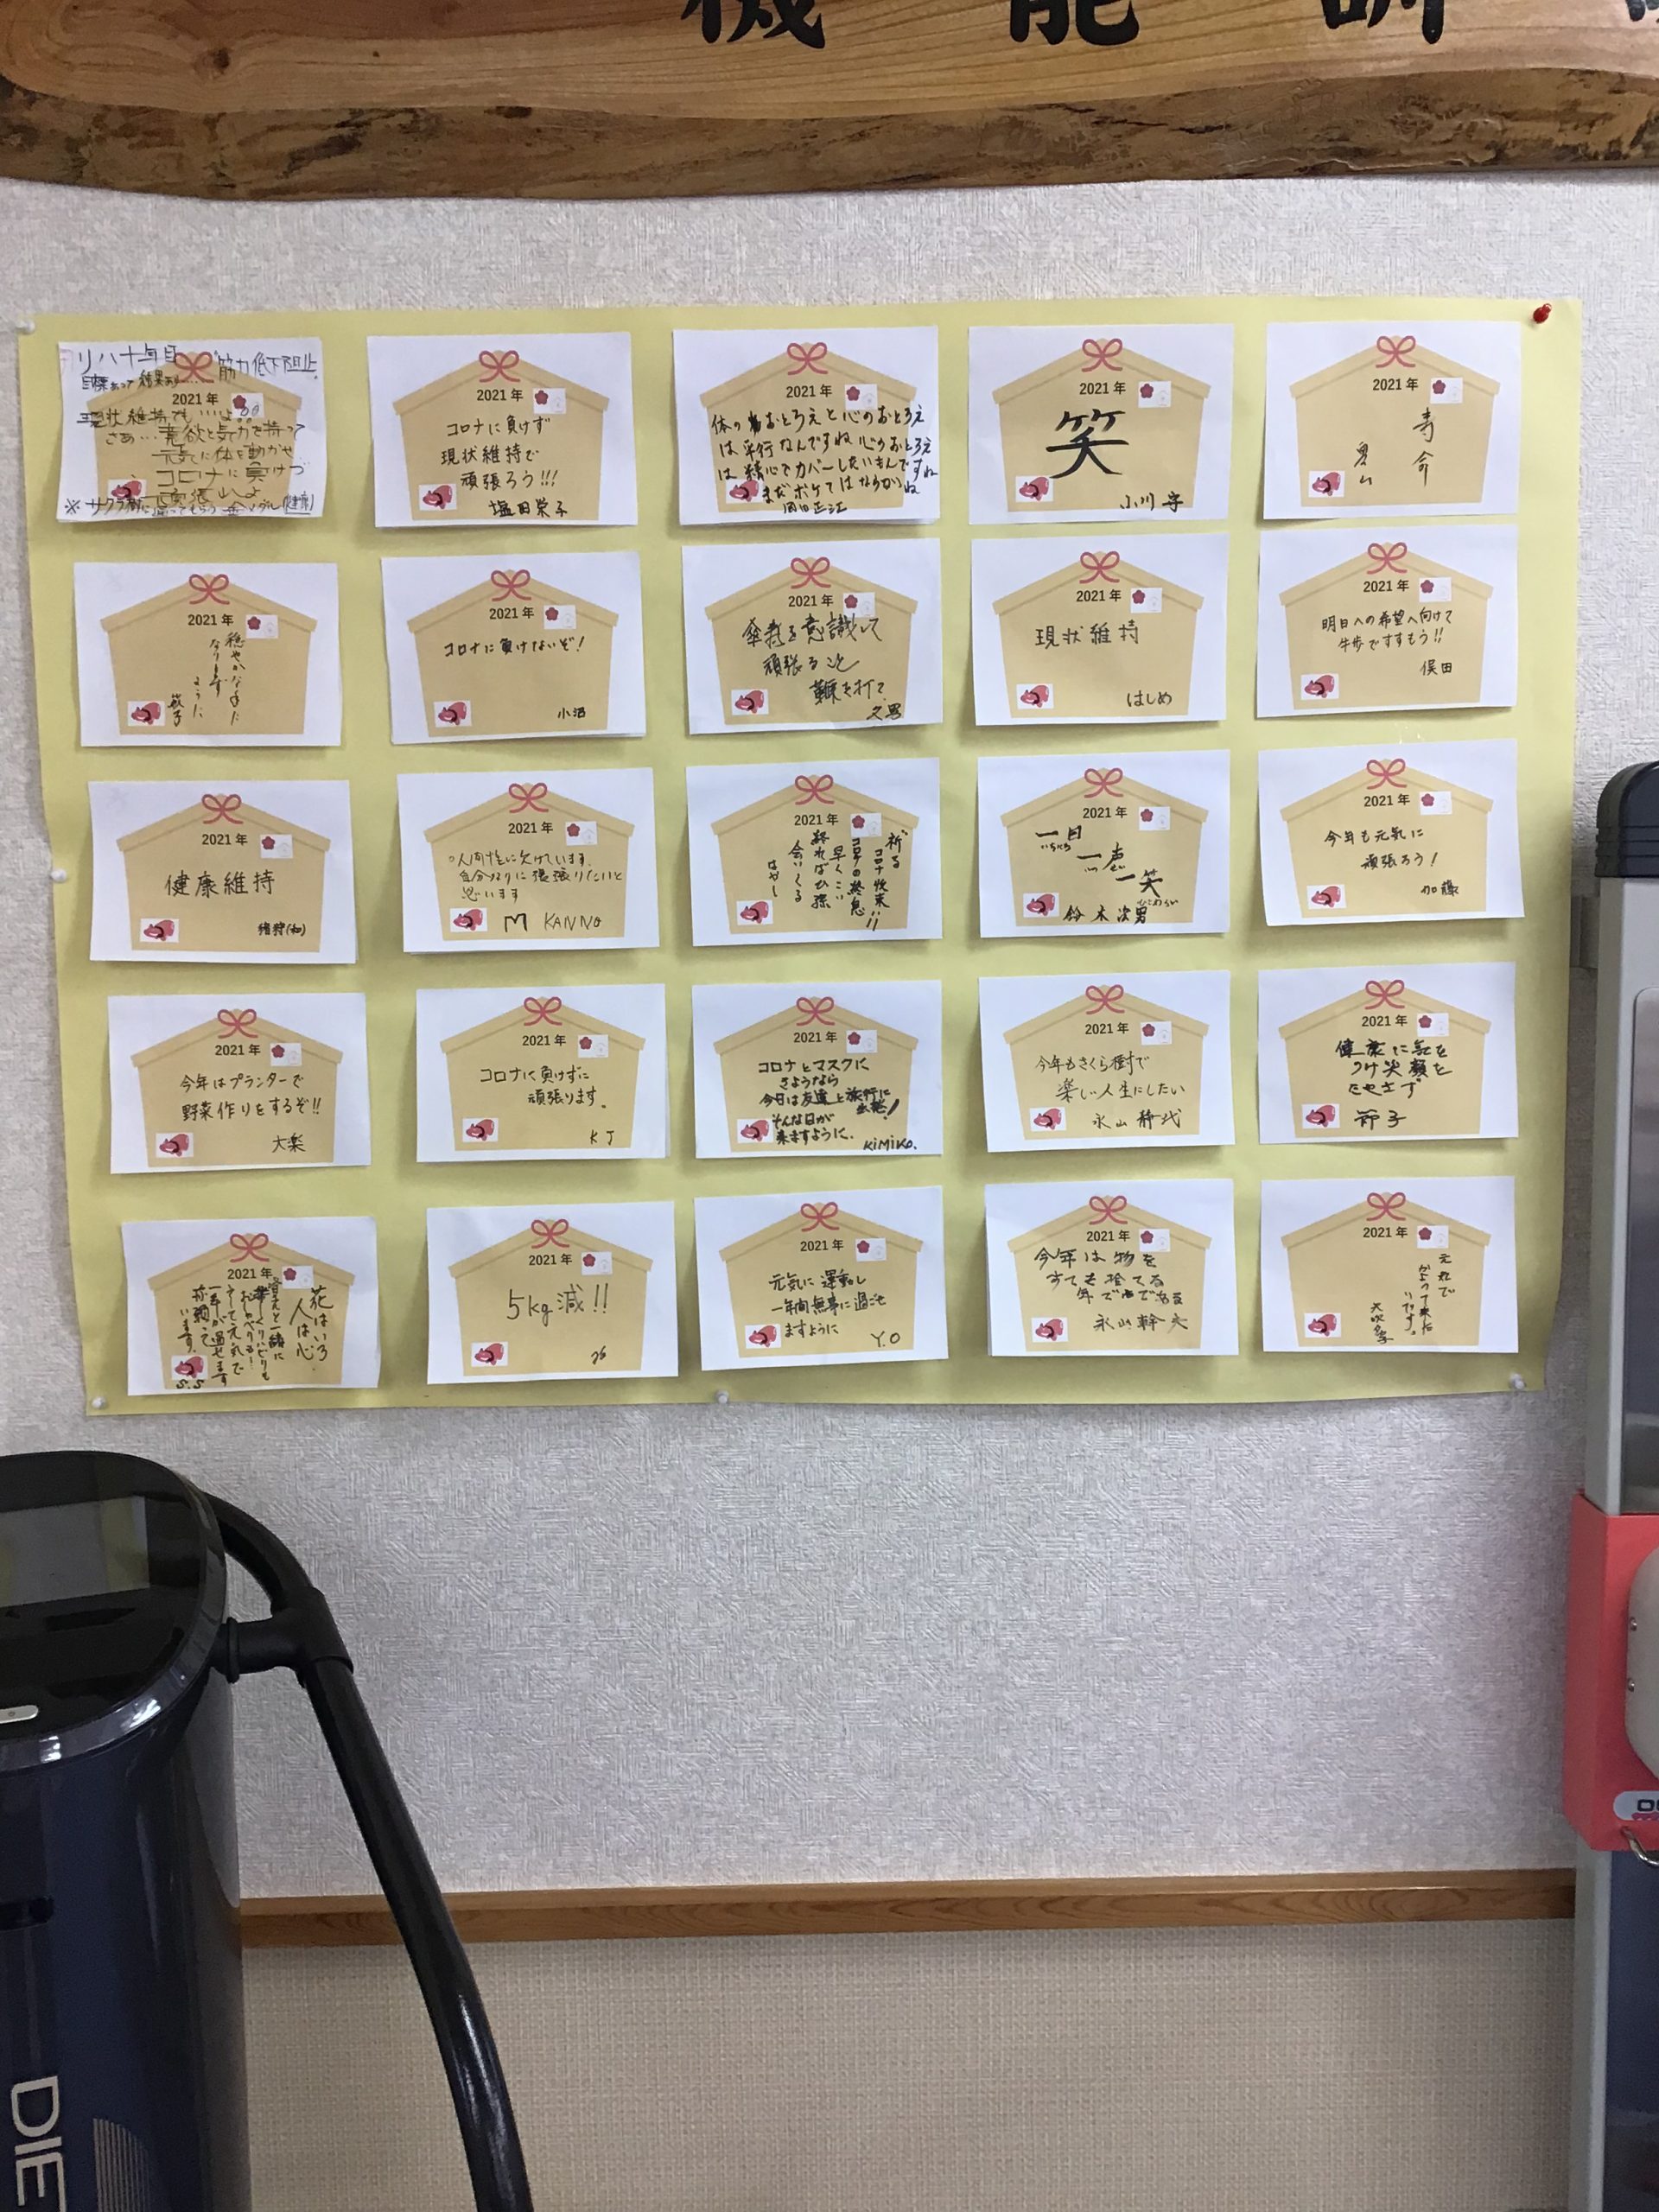 機能訓
リハ十年目 筋力低下阻止
目標あって結果あり……
2021年
現状維持でも…よ
さぁ…意欲と気力を持って
元気に体を動かせ
コロナに負けづ
頑張山へよ
※サクラ樹に 金メダル(健康)
2021年
コロナに負けず
現状維持で
頑張ろう!!!
塩田栄子
2021年
体のおとろえと心のおとろえ
は平行なんですね 心のおとろえ
は精心でカバーしたいもんですね
まだボケてはなるかいね
岡田正江
2021年
笑
小川守
2021年
寿命
2021年
穏やかな年に
なります
ように
敏子
2021年
コロナに負けないぞ!
小沼
2021年
傘寿を意識して
頑張ること
鞭を打て
久男
2021年
現状維持
はじめ
2021年
明日への希望へ向けて
牛歩ですすもう!!
俣田
2021年
健康維持
猪狩(和)
2021年
。人間性に欠けています。
自分なりに頑張りたいと
思います
M KANNO
2021年
祈る
コロナ収束!!
コロナの終息
早くこい
終ればひ孫
会いくる
はやし
2021年
一日
いちにち
一恵
一笑
鈴木次男
2021年
今年も元気に
頑張ろう!
加藤
2021年
今年はプランターで
野菜作りをするぞ!!
大楽
2021年
コロナに負けずに
頑張ります。
KJ
2021年
コロナとマスクに
さようなら
今日は友達と旅行に
出発!
そんな日が
来ますように。
KiMiKo.
2021年
今年もさくら樹で
楽しい人生にしたい
永山静代
2021年
健康に気を
つけ笑顔を
たやさず
節子
2021年
花はいろ
人は心
皆さんと一緒に
ゆっくりいどりも
おしゃべりも!
そして元気で
一年が過せます
S.S
2021年
5kg減!!
2021年
元気に運動し
一年間無事に過ごせ
ますように
Y.O
2021年
今年は物を
すてる捨てる
年である
永山幹夫
2021年
元気で
DIE